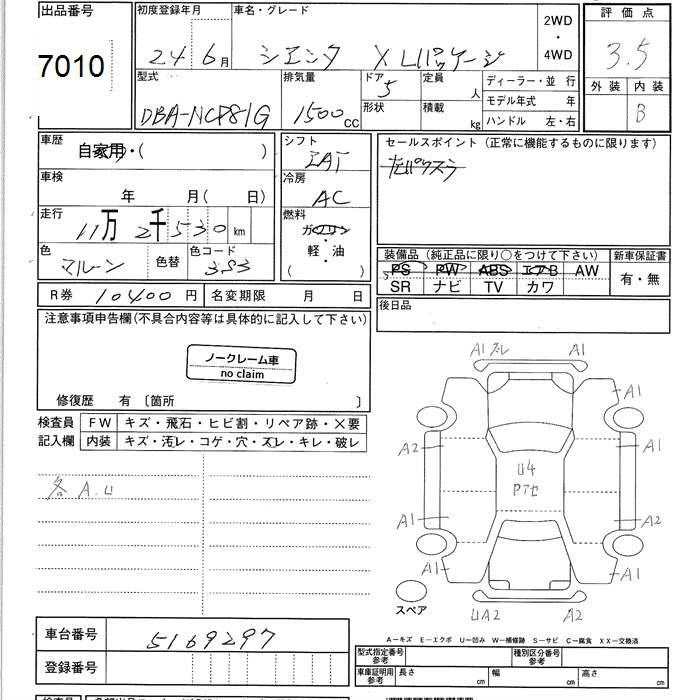 出品番号 初度登録年月 車名・グレード 2WD・4WD 評価点
7010 24 6月 シエンタ X Lパッケージ 3.5
型式 排気量 ドア 定員 人 ディーラー・並 行 外装 内装
DBA-NCP81G 1500cc 5 形状 積載 kg モデル年式 年 B
ハンドル 左・右
車歴 自家用・( ) シフト セールスポイント (正常に機能するものに限ります)
車検 年 月( 日) 冷房 AC
走行 11万 2千 530 km 燃料 ガソリン・軽・油 ( )
色 マルーン 色替 色コード 3S3
装備品 (純正品に限り○をつけて下さい) 新車保証書
PS PW ABS エアB AW 有・無
SR ナビ TV カワ
R券 10400円 名変期限 月 日 後日品
注意事項申告欄(不具合内容等は具体的に記入して下さい)
ノークレーム車
no claim
修復歴 有 〔箇所 〕
検査員 FW キズ・飛石・ヒビ割・リペア跡・×要
記入欄 内装 キズ・汚レ・コゲ・穴・スレ・キレ・破レ
各A.U
A1 ズレ A1
A1
A2 A1
U4
Pアセ
A1 A2
A1 A1
スペア
UA2 A2
車台番号 5169297
登録番号
A-キズ E-エクボ U-凹み W-補修跡 S-サビ C-腐食 XX-交換済
型式指定番号 参考 種別区分番号 参考
車庫証明用 参考 長さ cm 幅 cm 高さ cm